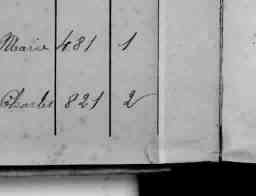 Marie 481 1
Charles 821 2